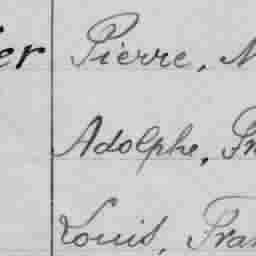 er Pierre, N
Adolphe, Fr
Louis, Fran